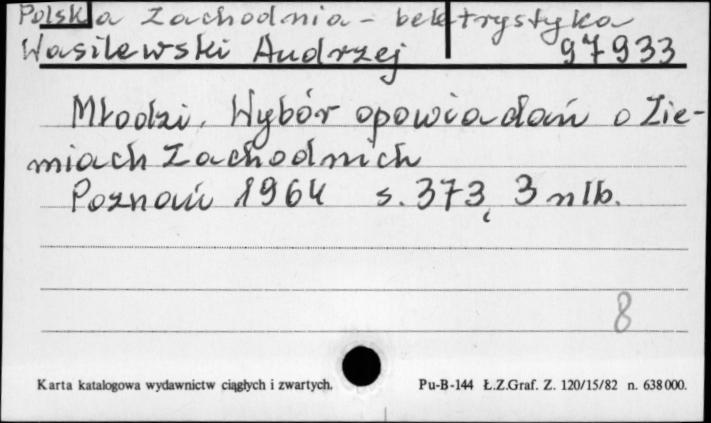 Polska Zachodnia - beletrystyka
Wasilewski Andrzej 97933
Młodzi. Wybór opowiadań o Zie-
miach Zachodnich
Poznań 1964 s. 373, 3 nlb.
8
Karta katalogowa wydawnictw ciągłych i zwartych. Pu-B-144 Ł.Z.Graf. Z. 120/15/82 n. 638000.